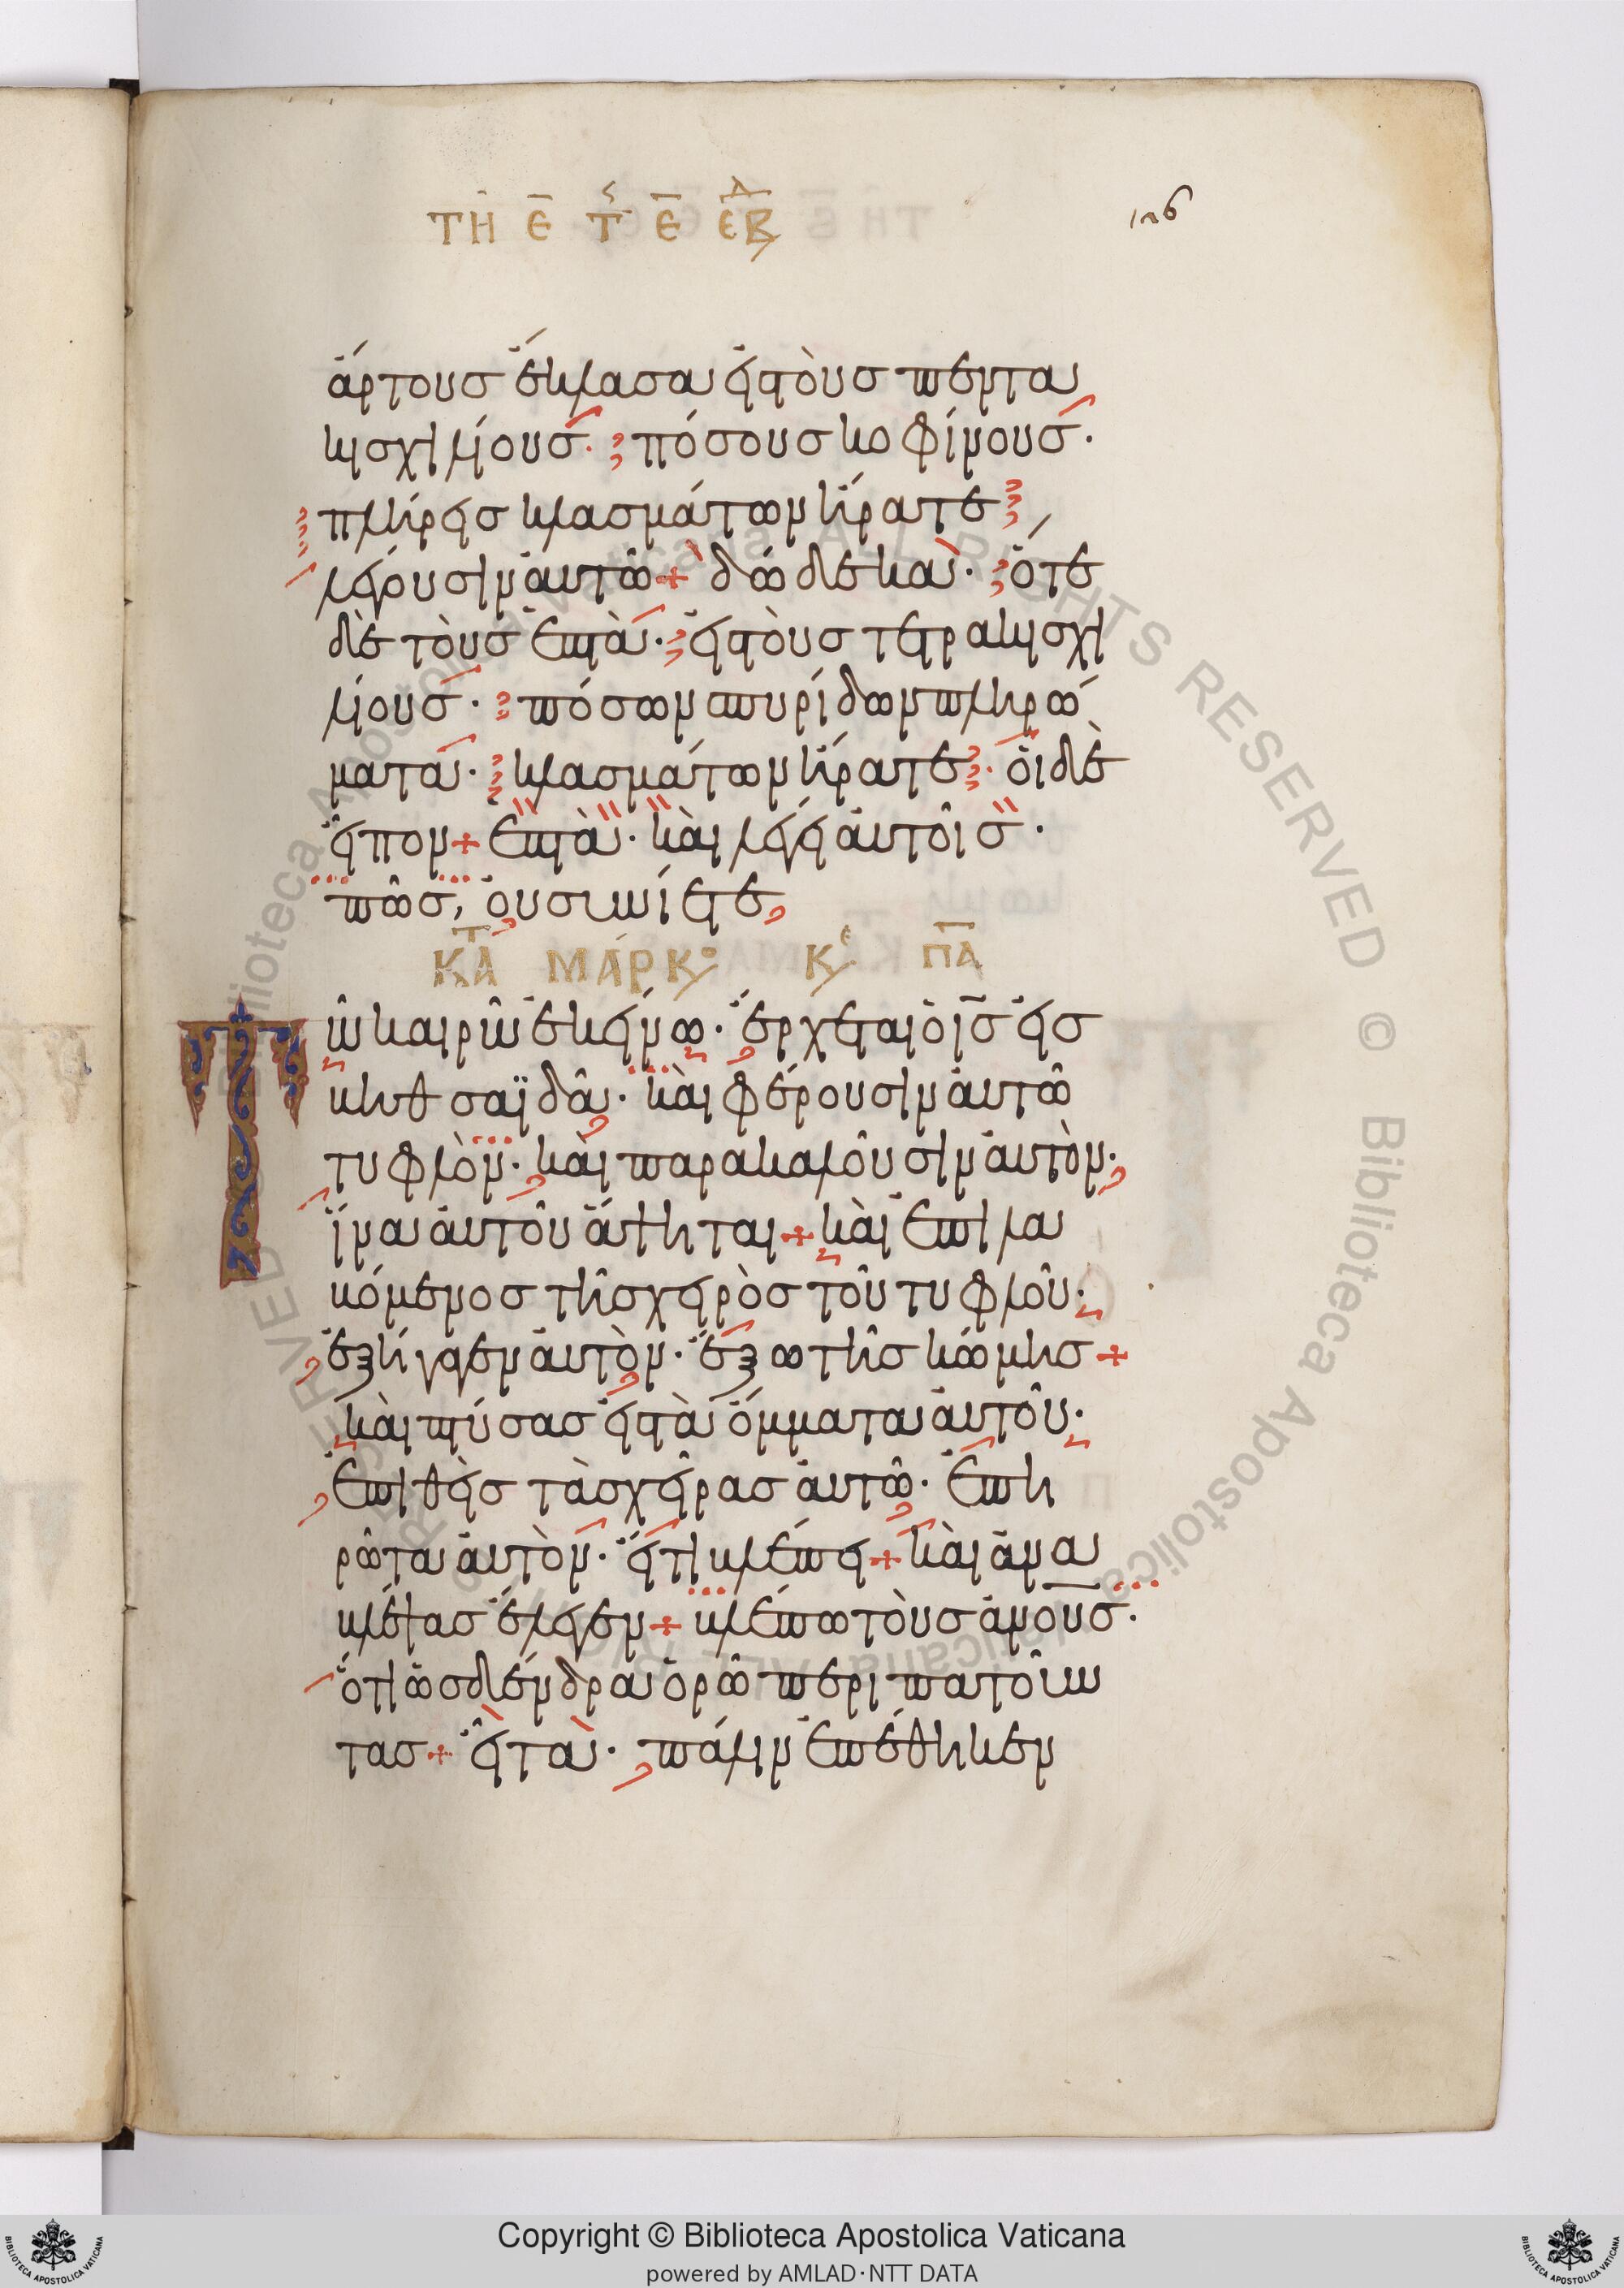 ΤΗ Ε Τ Ε ΕΒΔ
126
ἄρτους ἔκλασα εἰς τοὺς πεντα
κισχιλίους· πόσους κοφίνους·
πλήρεις κλασμάτων ἤρατε
λέγουσιν αὐτῶ + δώδεκα· ὅτε
δὲ τοὺς ἑπτὰ· εἰς τοὺς τετρακισχι
λίους· πόσων σπυρίδων πληρώ
ματα· κλασμάτων ἤρατε· οἱ δὲ
εἶπον + ἑπτὰ· καὶ λέγει αὐτοῖς·
πῶς, οὐ συνίετε
ΚΑΤ ΜΑΡΚΟ ΚΕ ΠΑ
Τῶ καιρῶ ἐκείνω· ἔρχεται ὁ ις εἰς
βηθσαϊδὰ· καὶ φέρουσιν αὐτῶ
τυφλὸν· καὶ παρακαλοῦσιν αὐτὸν·
ἵνα αὐτοῦ ἅψηται + καὶ ἐπιλα
βόμενος τῆς χειρὸς τοῦ τυφλοῦ·
ἐξήγαγεν αὐτὸν· ἔξω τῆς κώμης +
καὶ πτύσας εἰς τὰ ὄμματα αὐτοῦ·
ἐπιθεὶς τὰς χεῖρας αὐτῶ· ἐπη
ρώτα αὐτὸν· εἴ τι βλέπει + καὶ ἀνα
βλέψας ἔλεγεν + βλέπω τοὺς ανους·
ὅτι ὡς δένδρα ὁρῶ περιπατοῦν
τας + εἶτα· πάλιν ἐπέθηκεν
Copyright © Biblioteca Apostolica Vaticana
powered by AMLAD·NTT DATA